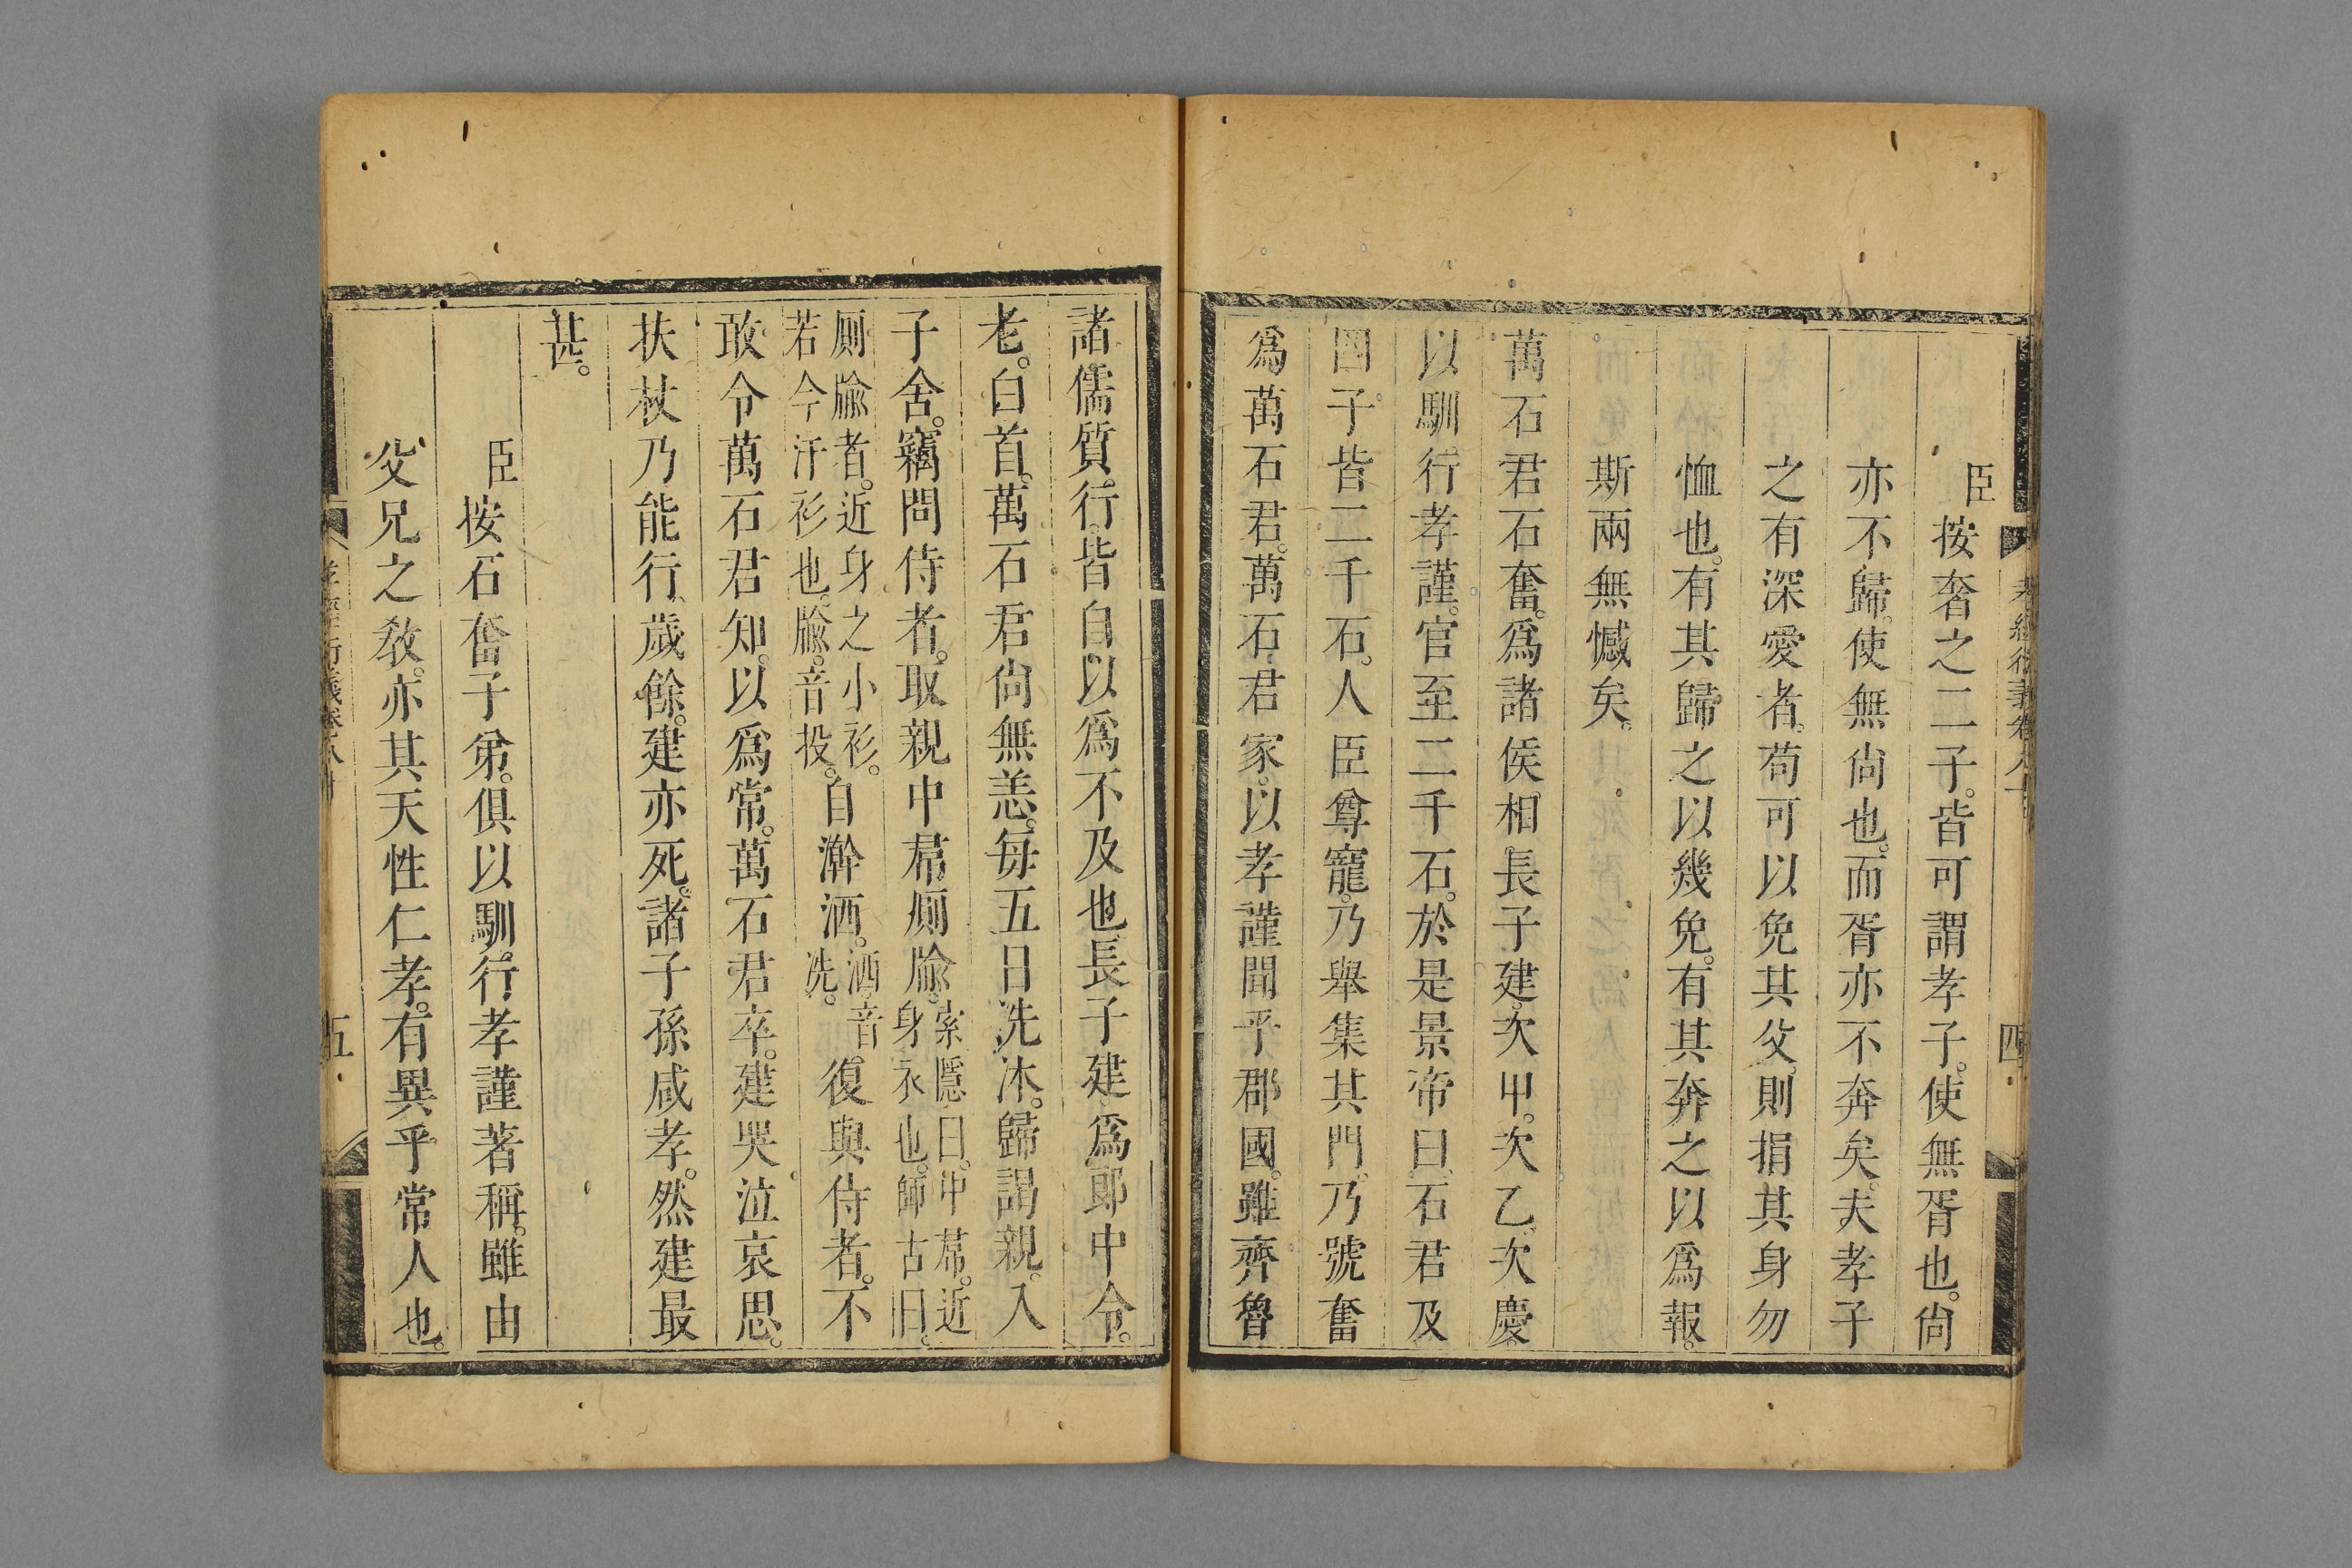 臣按奢之二子。皆可謂孝子。使無胥也。尙
亦不歸。使無尙也。而胥亦不奔矣。夫孝子
之有深愛者。苟可以免其父。則捐其身勿
恤也。有其歸之以幾免。有其奔之以爲報。
斯兩無憾矣。
萬石君石奮。爲諸侯相。長子建。次甲。次乙。次慶。
以馴行孝謹。官至二千石。於是景帝曰。石君及
四子。皆二千石。人臣尊寵。乃舉集其門。乃號奮
爲萬石君。萬石君家。以孝謹聞乎郡國。雖齊魯
四
諸儒質行。皆自以爲不及也。長子建爲郎中令。
老。白首。萬石君尙無恙。每五日洗沐。歸謁親。入
子舍。竊問侍者。取親中帬廁牏。索隱曰。中帬。近身衣也。師古曰。
廁牏者。近身之小衫。若今汗衫也。牏。音投。自澣洒。洒音洗。復與侍者。不
敢令萬石君知。以爲常。萬石君卒。建哭泣哀思。
扶杖乃能行。歲餘。建亦死。諸子孫咸孝。然建最
甚。
臣按石奮子弟。俱以馴行孝謹著稱。雖由
父兄之敎。亦其天性仁孝。有異乎常人也。
五